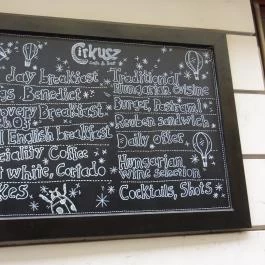 Cirkusz
Café & Bar
day breakfast
Benedict
overy Breakfast
English breakfast
ciality Coffee
t white, Cortado
kes,
Traditional
Hungarian cuisine
Burger, Pastrami
Reuben sandwich
Daily offer
Hungarian
wine selection
Cocktails, Shots